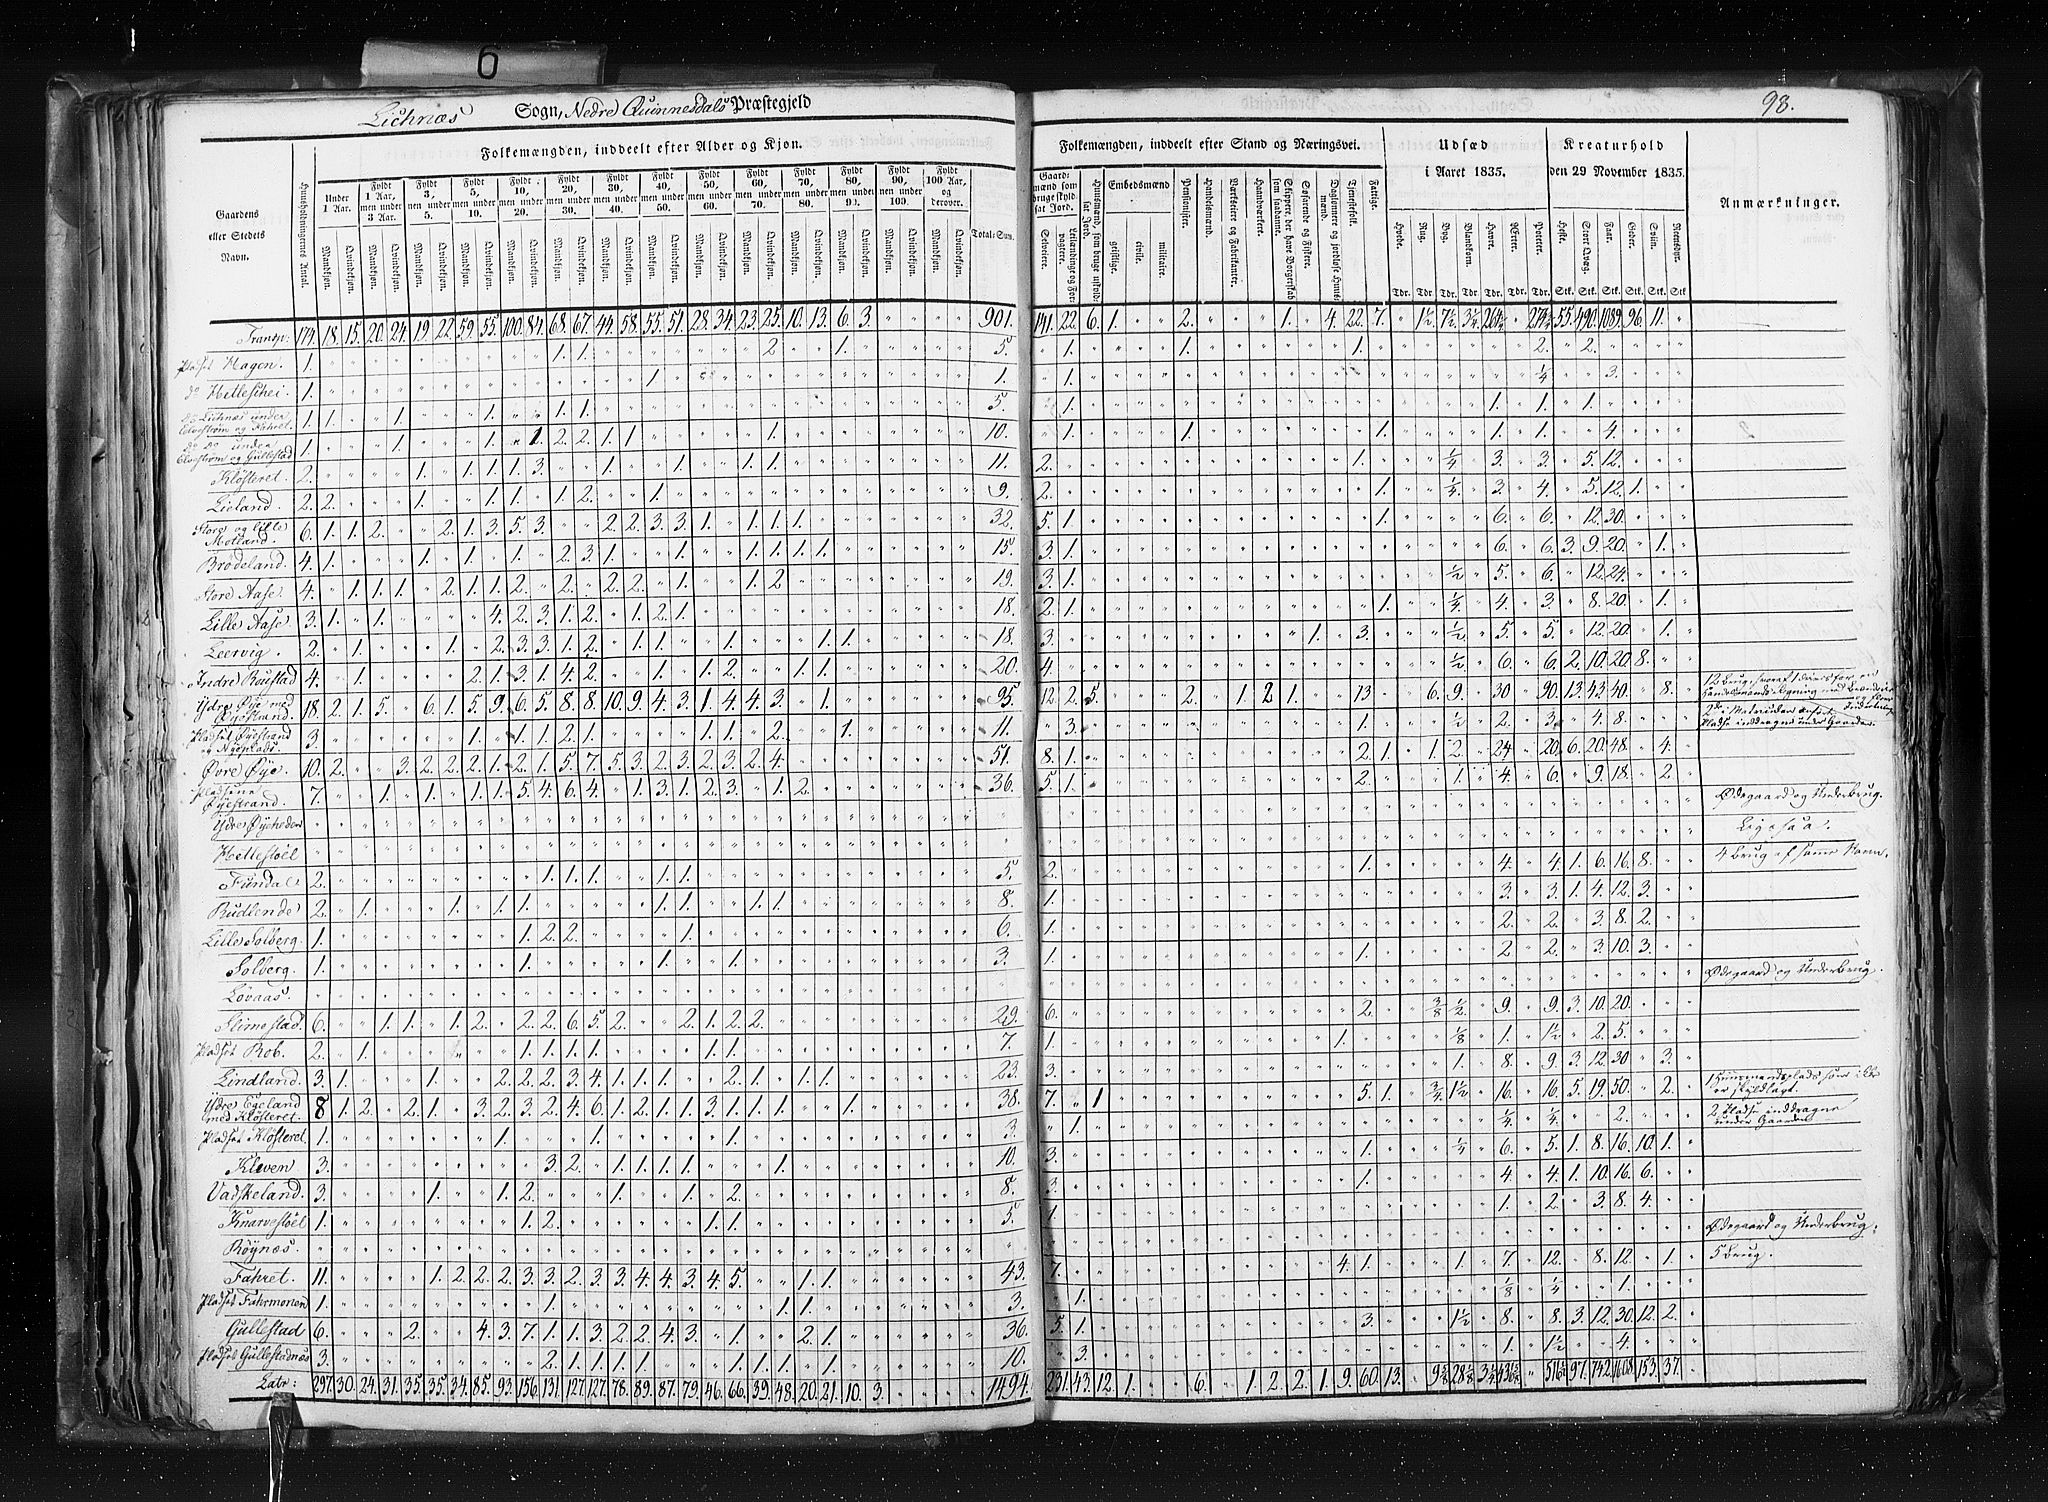 6
Lichnæs Sogn, Nedre Quinnesdals Præstegjeld
98.
Folkemængden, inddeelt efter Alder og Kjøn.
Folkemængden, inddeelt efter Stand og Næringsvei.
Udsæd i Aaret 1835.
Kreaturhold den 29 November 1835.
Anmærkninger.
Gaardens eller Stedets Navn.
Huusholdningernes Antal.
Under 1 Aar.
Fyldt 1 Aar, men under 3 Aar.
Fyldt 3, men under 5.
Fyldt 5, men under 10.
Fyldt 10, men under 20.
Fyldt 20, men under 30.
Fyldt 30, men under 40.
Fyldt 40, men under 50.
Fyldt 50, men under 60.
Fyldt 60, men under 70.
Fyldt 70, men under 80.
Fyldt 80, men under 90.
Fyldt 90, men under 100.
Fyldt 100 Aar, og derover.
Mandkjøn. Qvindekjøn.
Total-Sum.
Gaardmænd som bruge skyldsat Jord.
Selveiere.
Leilændinge og Forpagtere.
Huusmænd, som bruge uskyldsat Jord.
Embedsmænd
geistlige. civile. militaire.
Pensionister.
Handelsmænd.
Værkseiere og Fabrikanter.
Haandværkere.
Skippere, der have Borgerskab som saadanne.
Søfarende og Fiskere.
Daglønnere og jordløse Huusmænd.
Tjenestefolk.
Fattige.
Hvede. Rug. Byg. Blandkorn. Havre. Ærter. Poteter.
Tdr. Tdr. Tdr. Tdr. Tdr. Tdr. Tdr.
Heste. Stort Qvæg. Faar. Geder. Sviin. Reensdyr.
Stk. Stk. Stk. Stk. Stk. Stk
Transp: 174. 18. 15. 20. 24. 19. 22. 59. 55. 100. 84. 68. 67. 44. 58. 55. 51. 28. 34. 23. 25. 10. 13. 6. 3. 901. 141. 22. 6. 1. 2. 1. 4. 22. 7.
Pladset Hagen. 1. 1. 1. 2. 1. 5. 1. 1. 1. 2. 2.
do Hellesthei 1. 1. 1. 1. 1/4 3.
do Lichnæs under Elvestrøm og 1. 1. 1. 1. 1. 1. 5. 1. 1. 1. 1.
do do under Elvestrøm og Gullestad 1. 1. 1. 1. 2. 2. 1. 1. 1. 10. 1. 1. 1. 1. 1. 4.
Klosteret. 2. 1. 1. 1. 1. 3. 1. 1. 1. 1. 11. 2. 1. 1/4 3. 3. 5. 12.
Lieland 2. 2. 1. 1. 1. 1. 2. 1. 9. 2. 1. 1/4 3. 4. 5. 12. 1.
Store og Lille Motland. 6. 1. 1. 2. 2. 1. 3. 5. 3. 2. 2. 3. 3. 1. 1. 1. 1. 32. 5. 1. 1. 6. 6. 12. 30.
Brødeland. 4. 1. 1. 1. 1. 2. 3. 1. 1. 1. 1. 1. 1. 15. 3. 1. 6. 6. 3. 9. 20. 1.
Store Aase. 4. 1. 1. 1. 2. 1. 1. 2. 2. 2. 2. 1. 1. 2 19. 3. 1. 1/2 5. 6. 12. 24.
Lille Aase. 3. 1. 1. 4. 2. 3. 1. 2. 1. 2. 1. 18. 2. 1. 1. 1/4 4. 3. 8. 20. 1.
Leervig 2. 1. 1. 2. 3. 3. 1. 2. 1. 1. 1. 1. 18. 3. 1. 3. 1/2 5. 5. 12. 20. 1.
Indre Røistad 4. 1. 2. 1. 3. 1. 4. 2. 1. 1. 2. 1. 1. 20. 4. 1/2 6. 6. 2. 10. 20. 8.
Ydre Øye med Øyestrand. 18. 2. 1. 5. 6. 1. 5. 9. 6. 5. 8. 8. 10. 9. 4. 3. 1. 4. 4. 3. 1. 95. 12. 2. 5. 2. 1. 2. 1. 13. 6. 9. 30. 90. 13. 43. 40. 8.
Pladset Øyestrand og Nyeplads. 3. 1. 1. 1. 2. 1. 1. 1. 2. 1. 11. 3. 1. 1/2 2. 3. 4. 8.
Øvre Øye. 10. 2. 3. 2. 2. 2. 1. 2. 1. 5. 7. 5. 3. 2. 3. 2. 3. 2. 4. 51. 8. 1. 2. 1. 1. 2. 24 20. 6. 20. 48. 4.
Pladsene Øyestrand. 7. 1. 1. 1. 1. 5. 4. 6. 4. 1. 3. 1. 2. 3. 1. 2. 36. 5. 1. 2. 1. 4. 6. 9. 18. 2.
Ydre Øyeheden Ødegaard og Underbrug.
Hellestøel Ligesaa.
Fundal 2. 1. 1. 1. 1. 1. 5. 2. 1. 4. 4. 1. 6. 16. 8. 4 Brug af samme Navn.
Rudlende 2. 1. 1. 1. 1. 1. 1. 1. 1. 8. 1. 3. 3. 1. 4. 12. 3.
Lille Solberg. 1. 1. 2. 2. 1. 6. 1. 2. 2. 3. 8. 2.
Solberg. 1. 1. 1. 1. 3. 1. 1. 2 2. 3. 10. 3.
Løvaas. Ødegaard og Underbrug.
Slimestad. 6. 1. 1. 1. 2. 2. 2. 6. 5. 2. 2. 1. 2. 2. 29. 6. 2. 3/8 1/2 9. 9. 3. 10. 20.
Pladset Rob. 2. 1. 1. 1. 1. 1. 1. 1. 7. 1. 1. 1/8 1. 1 1/2 2. 5.
Lindland. 3. 1. 1. 2. 2. 2. 3. 4. 1. 1. 1. 2. 1. 1. 1. 23. 3. 1. 8. 9. 3. 12. 30. 3.
Ydre Egeland med Klosteret. 8. 1. 2. 2. 1. 3. 2. 3. 2. 4. 6. 1. 2. 1. 1. 3. 1. 1. 1. 1. 38. 7. 1 5. 1. 3/4 1 1/2 16. 16. 5. 19. 50. 2.
Pladset Klosteret. 1. 1. 1. 1. 3. 1. 1/4 1/4 2. 2 Pladse inddragne under Gaarden
Kleven 3. 3. 2. 1. 1. 1. 1. 1. 10. 3. 1. 1/4 6. 5. 1. 8. 16. 10. 1.
Vadskeland. 3. 1. 1. 2. 1. 1. 2. 8. 3. 1. 4. 4. 1. 10. 16. 6.
Knarvestøel 1. 1. 2. 1. 1. 5. 1. 1. 2. 3. 8. 4.
Røynæs. Ødegaard og Underbrug.
Fahret. 11. 1. 2. 2. 2. 3. 3. 2. 3. 3. 4. 4. 3. 4. 5. 1. 1. 43. 7. 4. 1. 1. 7. 12. 8. 12. 1. 5 Brug.
Pladset Fahrmonen 1. 1. 1. 1. 3. 1. 1/8 1/4 1.
Gullestad 6. 2. 4. 3. 7. 1. 1. 3. 2. 2. 4. 3. 1. 2. 1. 36. 5. 1. 3. 1 1/2 8. 8. 3. 12. 30. 12. 2.
Pladset Gullestadnæs 3. 2. 1. 1. 1. 1. 1. 1. 1. 1. 10. 3. 1. 1 1/2 4.
Latr: 297. 30. 24. 31. 35. 35. 34. 85. 93. 156. 131. 127. 127. 78. 89. 87. 79. 46. 66. 39. 48. 20. 21. 10. 3. 1494. 231. 43. 12. 1. 6. 1. 2. 2. 1. 9. 60. 13. 97. 742. 1608. 153. 37.